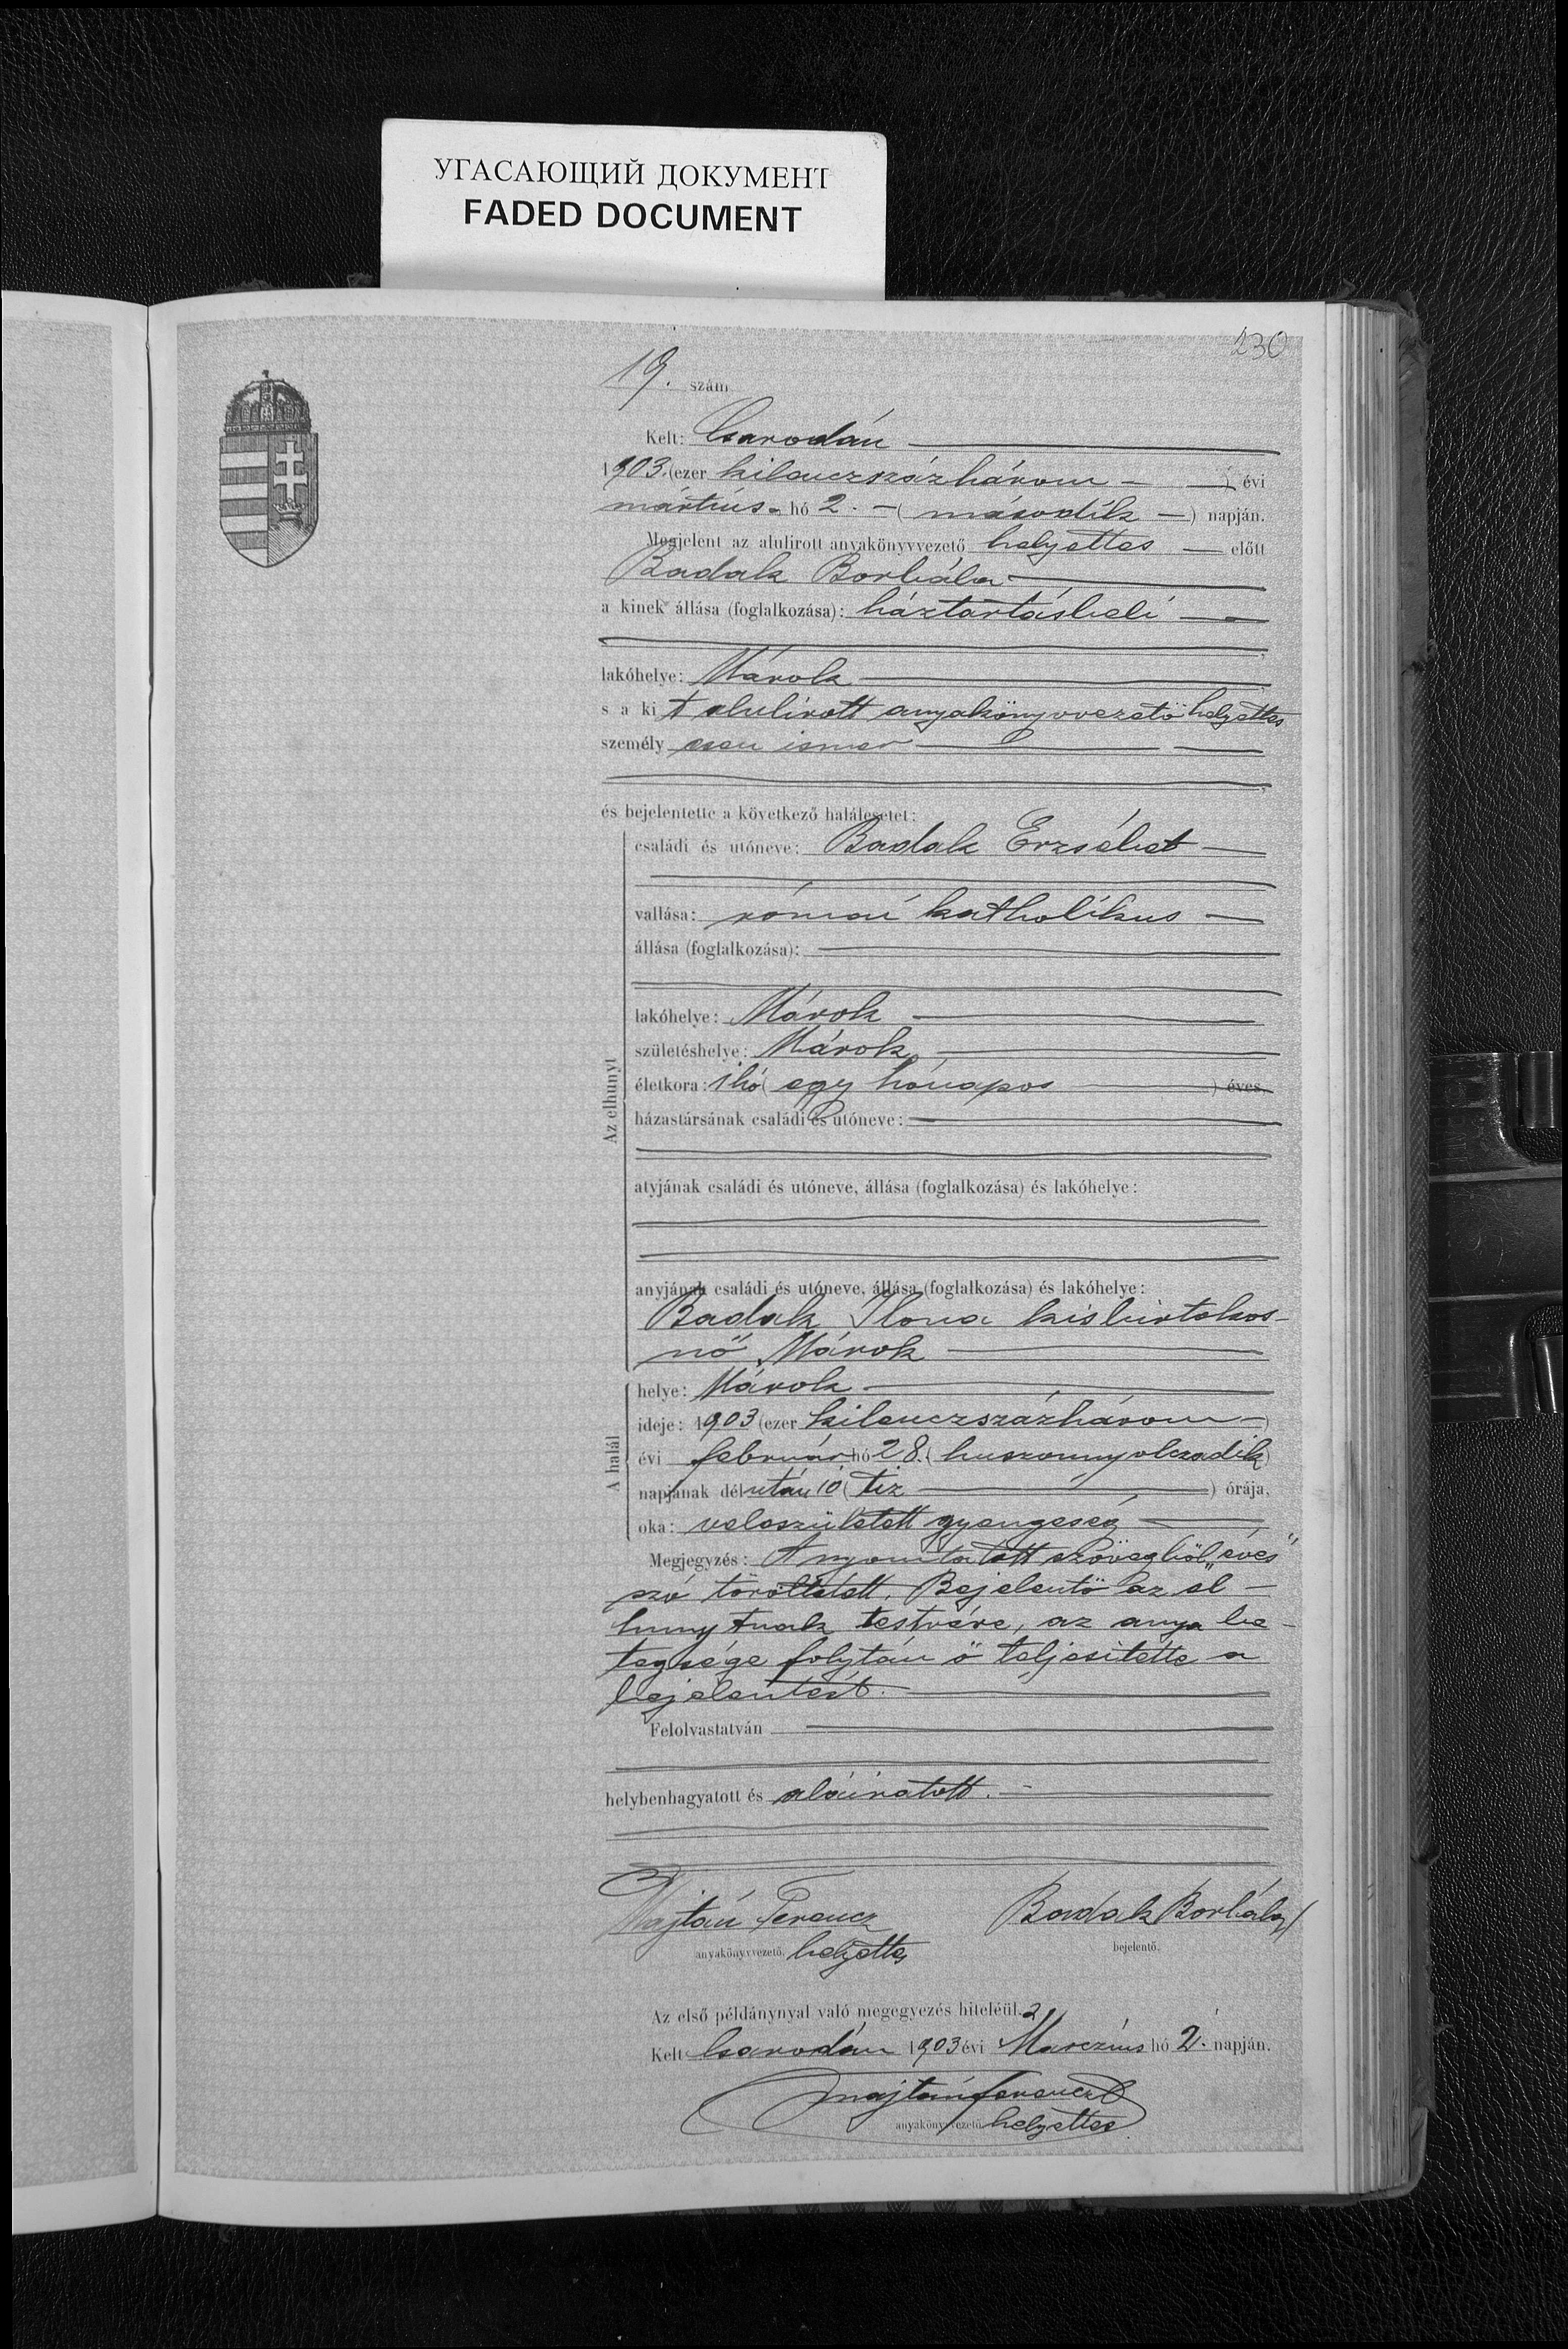 УГАСАЮЩИЙ ДОКУМЕНТ
FADED DOCUMENT
230
19. szám
Kelt: Csarodán
1903. (ezer kilenczszázhárom ) évi
mártius hó 2. (második) napján.
Megjelent az alulirott anyakönyvvezető helyettes előtt
Badak Borbála
a kinek állása (foglalkozása): háztartásbeli
lakóhelye: Márok
s a kit alulirott anyakönyvvezető helyettes
személyesen ismer
és bejelentette a következő halálesetet:
Az elhunyt
családi és utóneve: Badak Erzsébet
vallása: római katholikus
állása (foglalkozása):
lakóhelye: Márok
születéshelye: Márok
életkora: 1 hó (egy hónapos ) éves,
házastársának családi és utóneve:
atyjának családi és utóneve, állása (foglalkozása) és lakóhelye:
anyjának családi és utóneve, állása (foglalkozása) és lakóhelye:
Badak Ilona kisbirtokos-
nő Márok
A halál
helye: Márok
ideje: 1903 (ezer kilenczszázhárom)
évi február hó 28. (huszonnyolczadik)
napjának délután 10 (tiz ) órája,
oka: veleszületett gyengeség
Megjegyzés: A nyomtatott szövegből „éves"
szó töröltetett. Bejelentő az el-
hunytnak testvére, az anya be-
tegsége folytán ő teljesitette a
bejelentést.
Felolvastatván
helybenhagyatott és aláiratott.
Majtán Ferencz Badak Borbála
anyakönyvvezető. helyettes bejelentő.
Az első példánynyal való megegyezés hiteléül.
Kelt Csarodán 1903 évi Marczius hó 2. napján.
Majtán Ferencz
anyakönyvvezető helyettes